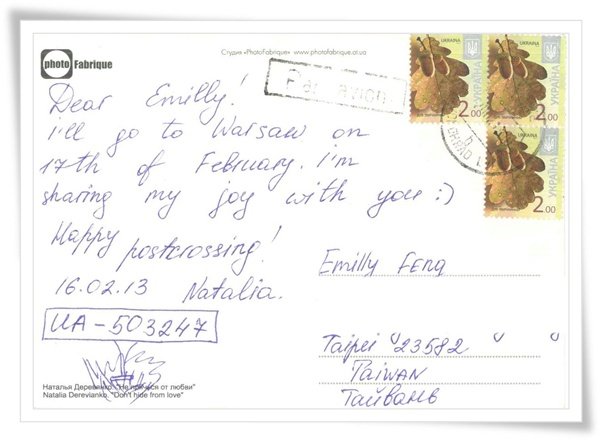 photo Fabrique
Студия «PhotoFabrique» www.photofabrique.at.ua
Par avion
UKRAINA
УКРАЇНА
2.00
UKRAINA
УКРАЇНА
2.00
UKRAINA
УКРАЇНА
2.00
Dear Emilly!
I'll go to Warsaw on
17th of February. I'm
sharing my joy with you :)
Happy postcrossing!
16.02.13 Natalia.
UA-503247
Emilly Feng
Taipei 23582
Taiwan
Тайвань
Наталья Деревянко. "Не прячься от любви"
Natalia Derevianko. "Don't hide from love"